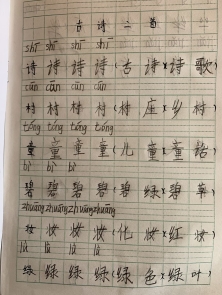 古诗二首
shī shī shī shī
诗诗诗诗(古诗)(诗歌)
cūn cūn cūn cūn
村村村村(村庄)(乡村)
tóng tóng tóng tóng
童童童童(儿童)(童话)
bì bì bì
碧碧碧碧(碧绿)(碧草)
zhuāng zhuāng zhuāng zhuāng
妆妆妆妆(化妆)(红妆)
lǜ lǜ lǜ
绿绿绿绿(绿色)(绿叶)